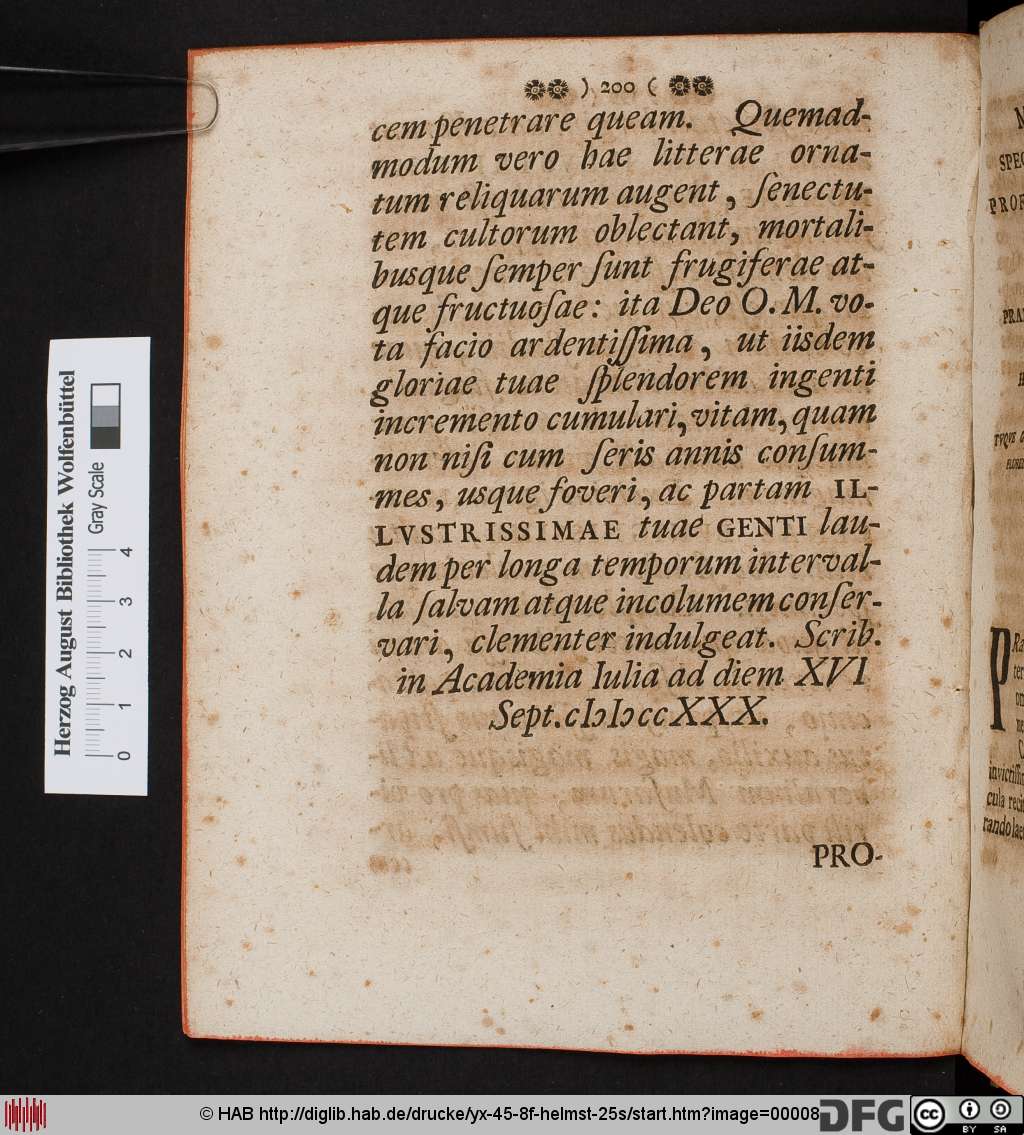 ) 200 (
cem penetrare queam. Quemad-
modum vero hae litterae orna-
tum reliquarum augent, ſenectu-
tem cultorum oblectant, mortali-
busque ſemper ſunt frugiferae at-
que fructuoſae: ita Deo O. M. vo-
ta facio ardentiſſima, ut iisdem
gloriae tuae ſplendorem ingenti
incremento cumulari, vitam, quam
non niſi cum ſeris annis conſum-
mes, usque foveri, ac partam IL-
LVSTRISSIMAE tuae GENTI lau-
dem per longa temporum interval-
la ſalvam atque incolumem conſer-
vari, clementer indulgeat. Scrib.
in Academia Iulia ad diem XVI
Sept. cIɔIɔccXXX.
PRO-
Herzog August Bibliothek Wolfenbüttel
Gray Scale
0 1 2 3 4
© HAB http://diglib.hab.de/drucke/yx-45-8f-helmst-25s/start.htm?image=00008
DFG
cc BY SA